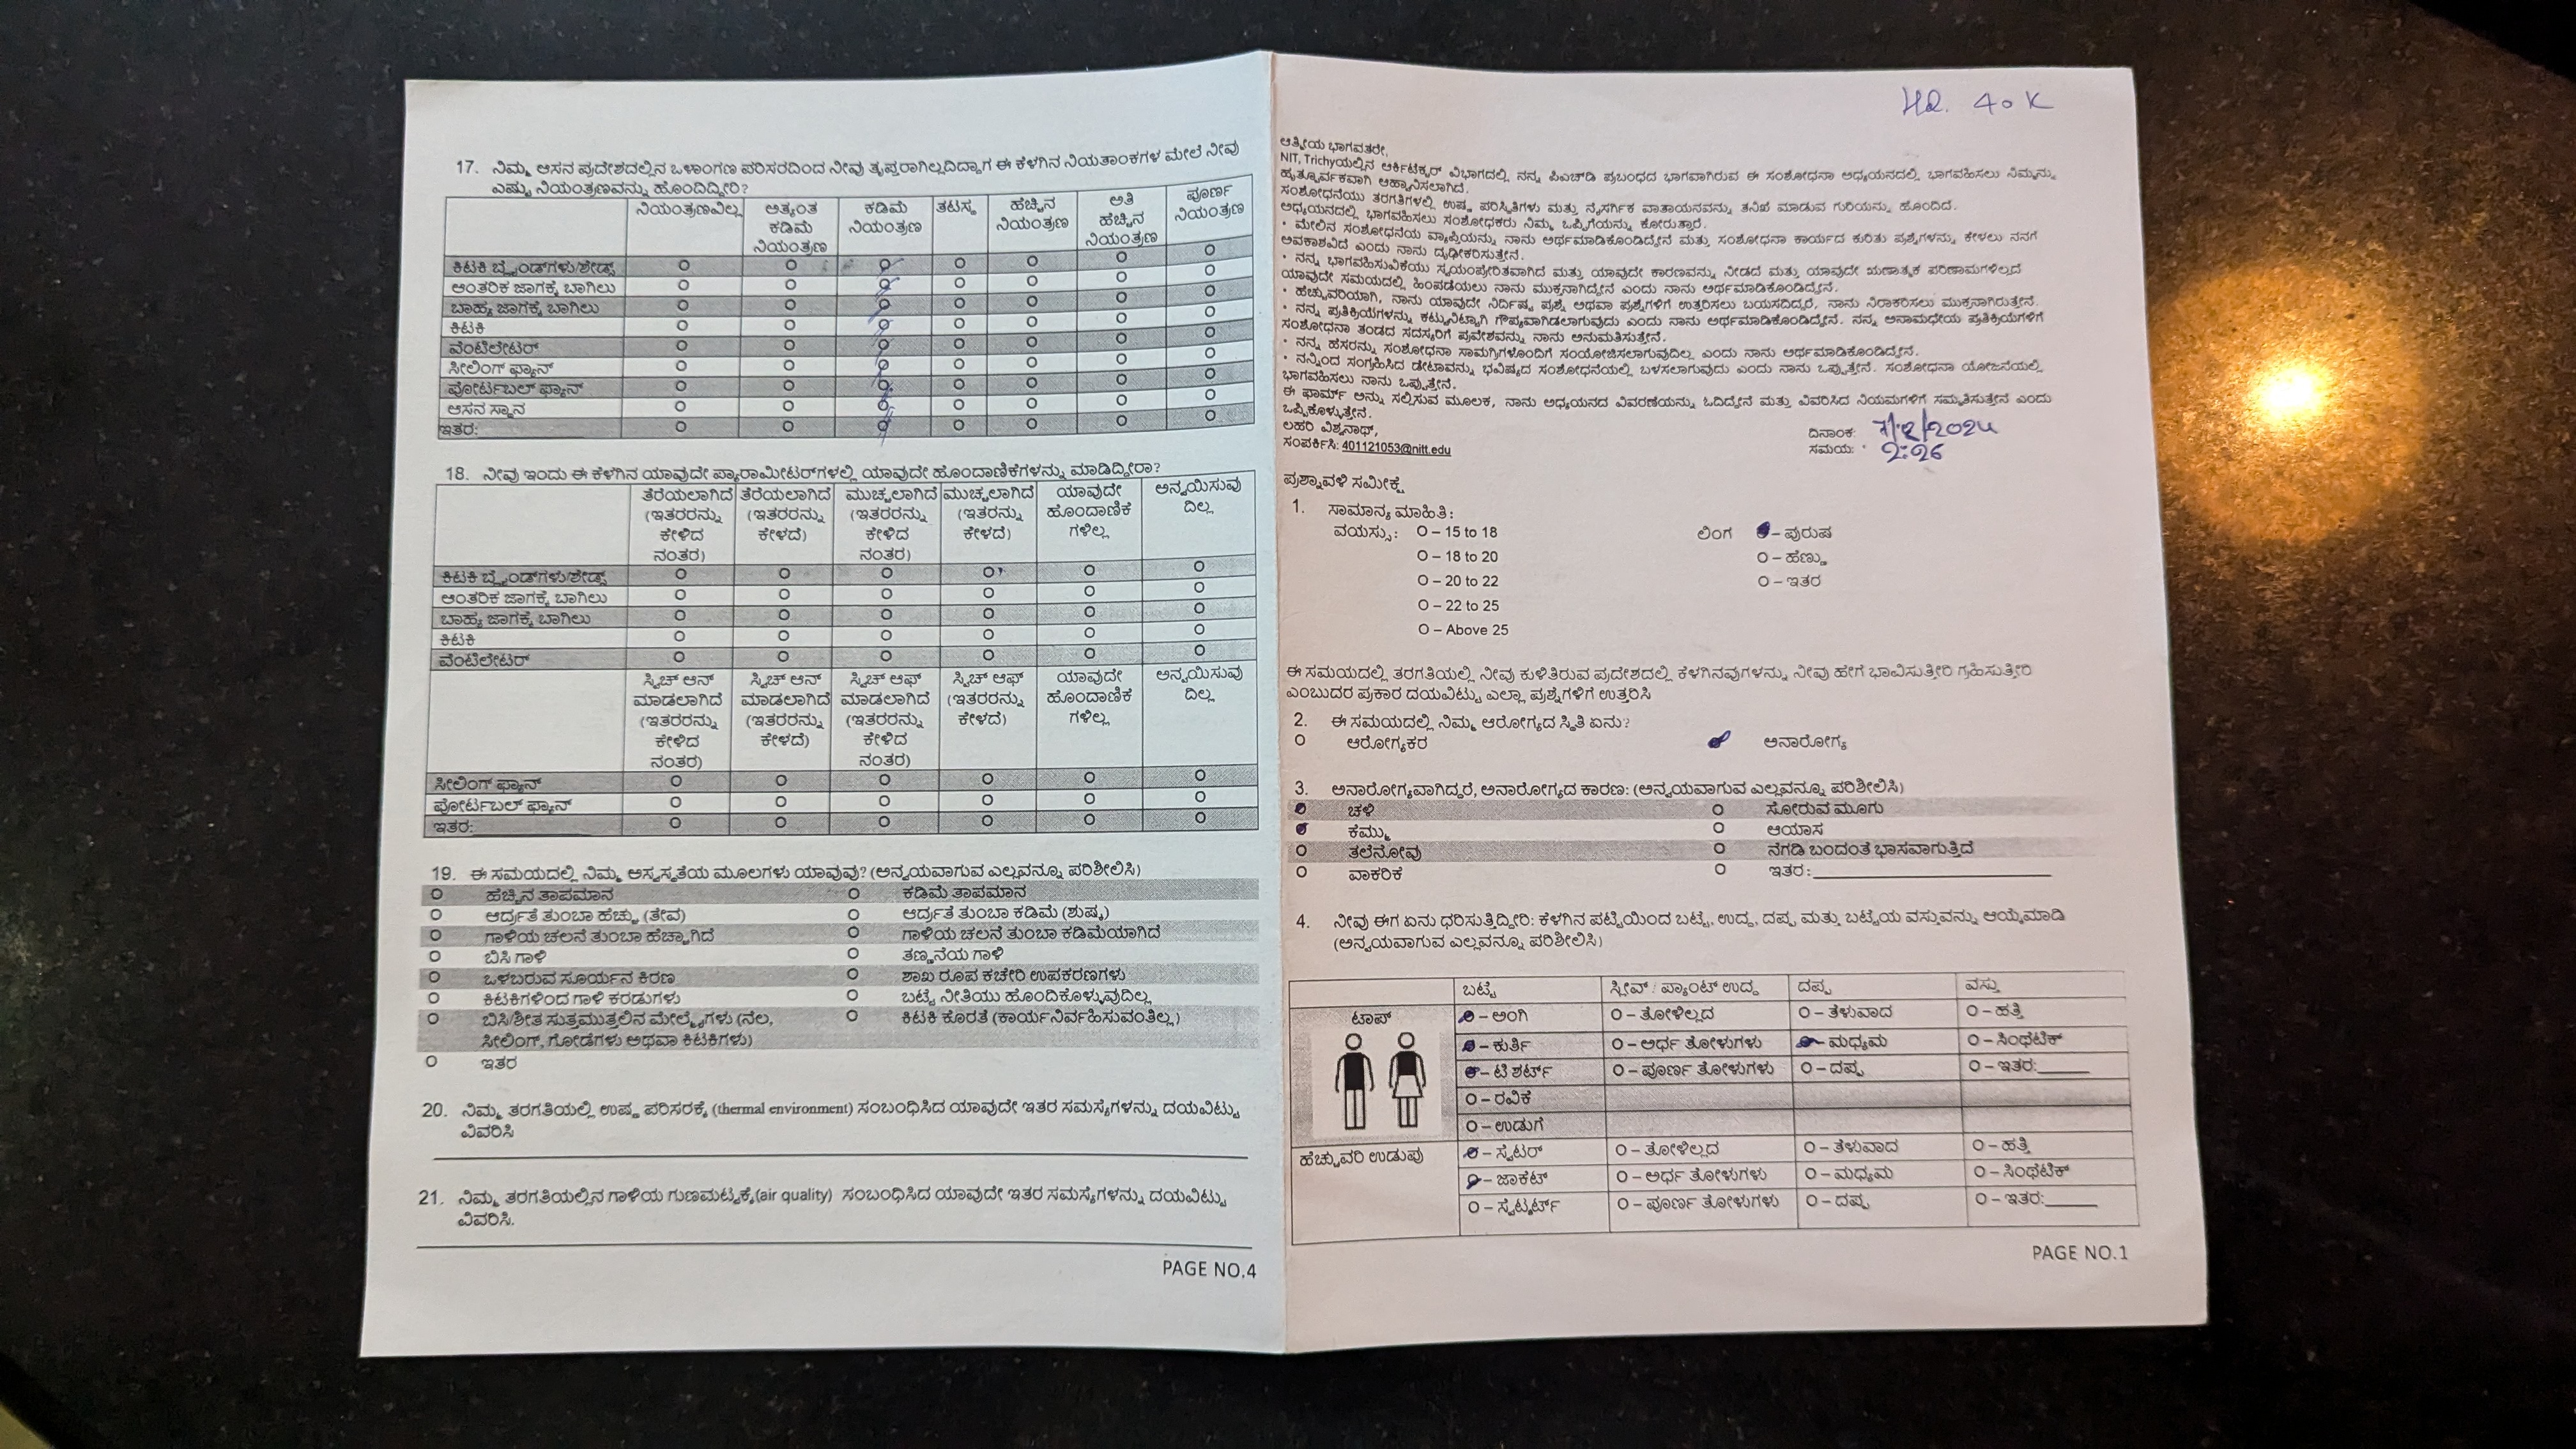 17. ನಿಮ್ಮ ಆಸನ ಪ್ರದೇಶದಲ್ಲಿನ ಒಳಾಂಗಣ ಪರಿಸರದಿಂದ ನೀವು ತೃಪ್ತರಾಗಿಲ್ಲದಿದ್ದಾಗ ಈ ಕೆಳಗಿನ ನಿಯತಾಂಕಗಳ ಮೇಲೆ ನೀವು
ಎಷ್ಟು ನಿಯಂತ್ರಣವನ್ನು ಹೊಂದಿದ್ದೀರಿ?
ನಿಯಂತ್ರಣವಿಲ್ಲ ಅತ್ಯಂತ ಕಡಿಮೆ ನಿಯಂತ್ರಣ ಕಡಿಮೆ ನಿಯಂತ್ರಣ ತಟಸ್ಥ ಹೆಚ್ಚಿನ ನಿಯಂತ್ರಣ ಅತಿ ಹೆಚ್ಚಿನ ನಿಯಂತ್ರಣ ಪೂರ್ಣ ನಿಯಂತ್ರಣ
ಕಿಟಕಿ ಬ್ಲೈಂಡ್‌ಗಳು/ಶೇಡ್ಸ್
ಆಂತರಿಕ ಜಾಗಕ್ಕೆ ಬಾಗಿಲು
ಬಾಹ್ಯ ಜಾಗಕ್ಕೆ ಬಾಗಿಲು
ಕಿಟಕಿ
ವೆಂಟಿಲೇಟರ್
ಸೀಲಿಂಗ್ ಫ್ಯಾನ್
ಪೋರ್ಟಬಲ್ ಫ್ಯಾನ್
ಆಸನ ಸ್ಥಾನ
ಇತರ:
18. ನೀವು ಇಂದು ಈ ಕೆಳಗಿನ ಯಾವುದೇ ಪ್ಯಾರಾಮೀಟರ್‌ಗಳಲ್ಲಿ ಯಾವುದೇ ಹೊಂದಾಣಿಕೆಗಳನ್ನು ಮಾಡಿದ್ದೀರಾ?
ತೆರೆಯಲಾಗಿದೆ (ಇತರರನ್ನು ಕೇಳಿದ ನಂತರ) ತೆರೆಯಲಾಗಿದೆ (ಇತರರನ್ನು ಕೇಳದೆ) ಮುಚ್ಚಲಾಗಿದೆ (ಇತರರನ್ನು ಕೇಳಿದ ನಂತರ) ಮುಚ್ಚಲಾಗಿದೆ (ಇತರರನ್ನು ಕೇಳದೆ) ಯಾವುದೇ ಹೊಂದಾಣಿಕೆ ಗಳಿಲ್ಲ ಅನ್ವಯಿಸುವು ದಿಲ್ಲ
ಕಿಟಕಿ ಬ್ಲೈಂಡ್‌ಗಳು/ಶೇಡ್ಸ್
ಆಂತರಿಕ ಜಾಗಕ್ಕೆ ಬಾಗಿಲು
ಬಾಹ್ಯ ಜಾಗಕ್ಕೆ ಬಾಗಿಲು
ಕಿಟಕಿ
ವೆಂಟಿಲೇಟರ್
ಸ್ವಿಚ್ ಆನ್ ಮಾಡಲಾಗಿದೆ (ಇತರರನ್ನು ಕೇಳಿದ ನಂತರ) ಸ್ವಿಚ್ ಆನ್ ಮಾಡಲಾಗಿದೆ (ಇತರರನ್ನು ಕೇಳದೆ) ಸ್ವಿಚ್ ಆಫ್ ಮಾಡಲಾಗಿದೆ (ಇತರರನ್ನು ಕೇಳಿದ ನಂತರ) ಸ್ವಿಚ್ ಆಫ್ (ಇತರರನ್ನು ಕೇಳದೆ) ಯಾವುದೇ ಹೊಂದಾಣಿಕೆ ಗಳಿಲ್ಲ ಅನ್ವಯಿಸುವು ದಿಲ್ಲ
ಸೀಲಿಂಗ್ ಫ್ಯಾನ್
ಪೋರ್ಟಬಲ್ ಫ್ಯಾನ್
ಇತರ:
19. ಈ ಸಮಯದಲ್ಲಿ ನಿಮ್ಮ ಅಸ್ವಸ್ಥತೆಯ ಮೂಲಗಳು ಯಾವುವು? (ಅನ್ವಯವಾಗುವ ಎಲ್ಲವನ್ನೂ ಪರಿಶೀಲಿಸಿ)
ಹೆಚ್ಚಿನ ತಾಪಮಾನ ಕಡಿಮೆ ತಾಪಮಾನ
ಆರ್ದ್ರತೆ ತುಂಬಾ ಹೆಚ್ಚು (ತೇವ) ಆರ್ದ್ರತೆ ತುಂಬಾ ಕಡಿಮೆ (ಶುಷ್ಕ)
ಗಾಳಿಯ ಚಲನೆ ತುಂಬಾ ಹೆಚ್ಚಾಗಿದೆ ಗಾಳಿಯ ಚಲನೆ ತುಂಬಾ ಕಡಿಮೆಯಾಗಿದೆ
ಬಿಸಿ ಗಾಳಿ ತಣ್ಣನೆಯ ಗಾಳಿ
ಒಳಬರುವ ಸೂರ್ಯನ ಕಿರಣ ಶಾಖ ರೂಪ ಕಚೇರಿ ಉಪಕರಣಗಳು
ಕಿಟಕಿಗಳಿಂದ ಗಾಳಿ ಕರಡುಗಳು ಬಟ್ಟೆ ನೀತಿಯು ಹೊಂದಿಕೊಳ್ಳುವುದಿಲ್ಲ
ಬಿಸಿ/ಶೀತ ಸುತ್ತಮುತ್ತಲಿನ ಮೇಲ್ಮೈಗಳು (ನೆಲ, ಕಿಟಕಿ ಕೊರತೆ (ಕಾರ್ಯನಿರ್ವಹಿಸುವಂತಿಲ್ಲ)
ಸೀಲಿಂಗ್, ಗೋಡೆಗಳು ಅಥವಾ ಕಿಟಕಿಗಳು)
ಇತರ
20. ನಿಮ್ಮ ತರಗತಿಯಲ್ಲಿ ಉಷ್ಣ ಪರಿಸರಕ್ಕೆ (thermal environment) ಸಂಬಂಧಿಸಿದ ಯಾವುದೇ ಇತರ ಸಮಸ್ಯೆಗಳನ್ನು ದಯವಿಟ್ಟು
ವಿವರಿಸಿ
21. ನಿಮ್ಮ ತರಗತಿಯಲ್ಲಿನ ಗಾಳಿಯ ಗುಣಮಟ್ಟಕ್ಕೆ(air quality) ಸಂಬಂಧಿಸಿದ ಯಾವುದೇ ಇತರ ಸಮಸ್ಯೆಗಳನ್ನು ದಯವಿಟ್ಟು
ವಿವರಿಸಿ.
PAGE NO.4
40 K
ಆತ್ಮೀಯ ಭಾಗವತರೇ,
NIT, Trichyಯಲ್ಲಿನ ಆರ್ಕಿಟೆಕ್ಚರ್ ವಿಭಾಗದಲ್ಲಿ ನನ್ನ ಪಿಎಚ್‌ಡಿ ಪ್ರಬಂಧದ ಭಾಗವಾಗಿರುವ ಈ ಸಂಶೋಧನಾ ಅಧ್ಯಯನದಲ್ಲಿ ಭಾಗವಹಿಸಲು ನಿಮ್ಮನ್ನು
ಹೃತ್ಪೂರ್ವಕವಾಗಿ ಆಹ್ವಾನಿಸಲಾಗಿದೆ.
ಸಂಶೋಧನೆಯು ತರಗತಿಗಳಲ್ಲಿ ಉಷ್ಣ ಪರಿಸ್ಥಿತಿಗಳು ಮತ್ತು ನೈಸರ್ಗಿಕ ವಾತಾಯನವನ್ನು ತನಿಖೆ ಮಾಡುವ ಗುರಿಯನ್ನು ಹೊಂದಿದೆ.
ಅಧ್ಯಯನದಲ್ಲಿ ಭಾಗವಹಿಸಲು ಸಂಶೋಧಕರು ನಿಮ್ಮ ಒಪ್ಪಿಗೆಯನ್ನು ಕೋರುತ್ತಾರೆ.
• ಮೇಲಿನ ಸಂಶೋಧನೆಯ ವ್ಯಾಪ್ತಿಯನ್ನು ನಾನು ಅರ್ಥಮಾಡಿಕೊಂಡಿದ್ದೇನೆ ಮತ್ತು ಸಂಶೋಧನಾ ಕಾರ್ಯದ ಕುರಿತು ಪ್ರಶ್ನೆಗಳನ್ನು ಕೇಳಲು ನನಗೆ
ಅವಕಾಶವಿದೆ ಎಂದು ನಾನು ದೃಢೀಕರಿಸುತ್ತೇನೆ.
• ನನ್ನ ಭಾಗವಹಿಸುವಿಕೆಯು ಸ್ವಯಂಪ್ರೇರಿತವಾಗಿದೆ ಮತ್ತು ಯಾವುದೇ ಕಾರಣವನ್ನು ನೀಡದೆ ಮತ್ತು ಯಾವುದೇ ಋಣಾತ್ಮಕ ಪರಿಣಾಮಗಳಿಲ್ಲದೆ
ಯಾವುದೇ ಸಮಯದಲ್ಲಿ ಹಿಂಪಡೆಯಲು ನಾನು ಮುಕ್ತನಾಗಿದ್ದೇನೆ ಎಂದು ನಾನು ಅರ್ಥಮಾಡಿಕೊಂಡಿದ್ದೇನೆ.
• ಹೆಚ್ಚುವರಿಯಾಗಿ, ನಾನು ಯಾವುದೇ ನಿರ್ದಿಷ್ಟ ಪ್ರಶ್ನೆ ಅಥವಾ ಪ್ರಶ್ನೆಗಳಿಗೆ ಉತ್ತರಿಸಲು ಬಯಸದಿದ್ದರೆ, ನಾನು ನಿರಾಕರಿಸಲು ಮುಕ್ತನಾಗಿರುತ್ತೇನೆ.
• ನನ್ನ ಪ್ರತಿಕ್ರಿಯೆಗಳನ್ನು ಕಟ್ಟುನಿಟ್ಟಾಗಿ ಗೌಪ್ಯವಾಗಿಡಲಾಗುವುದು ಎಂದು ನಾನು ಅರ್ಥಮಾಡಿಕೊಂಡಿದ್ದೇನೆ. ನನ್ನ ಅನಾಮಧೇಯ ಪ್ರತಿಕ್ರಿಯೆಗಳಿಗೆ
ಸಂಶೋಧನಾ ತಂಡದ ಸದಸ್ಯರಿಗೆ ಪ್ರವೇಶವನ್ನು ನಾನು ಅನುಮತಿಸುತ್ತೇನೆ.
• ನನ್ನ ಹೆಸರನ್ನು ಸಂಶೋಧನಾ ಸಾಮಗ್ರಿಗಳೊಂದಿಗೆ ಸಂಯೋಜಿಸಲಾಗುವುದಿಲ್ಲ ಎಂದು ನಾನು ಅರ್ಥಮಾಡಿಕೊಂಡಿದ್ದೇನೆ.
• ನನ್ನಿಂದ ಸಂಗ್ರಹಿಸಿದ ಡೇಟಾವನ್ನು ಭವಿಷ್ಯದ ಸಂಶೋಧನೆಯಲ್ಲಿ ಬಳಸಲಾಗುವುದು ಎಂದು ನಾನು ಒಪ್ಪುತ್ತೇನೆ. ಸಂಶೋಧನಾ ಯೋಜನೆಯಲ್ಲಿ
ಭಾಗವಹಿಸಲು ನಾನು ಒಪ್ಪುತ್ತೇನೆ.
ಈ ಫಾರ್ಮ್ ಅನ್ನು ಸಲ್ಲಿಸುವ ಮೂಲಕ, ನಾನು ಅಧ್ಯಯನದ ವಿವರಣೆಯನ್ನು ಓದಿದ್ದೇನೆ ಮತ್ತು ವಿವರಿಸಿದ ನಿಯಮಗಳಿಗೆ ಸಮ್ಮತಿಸುತ್ತೇನೆ ಎಂದು
ಒಪ್ಪಿಕೊಳ್ಳುತ್ತೇನೆ.
ಲಹರಿ ವಿಶ್ವನಾಥ್, ದಿನಾಂಕ: 7/2/2024
ಸಂಪರ್ಕಿಸಿ: 401121053@nitt.edu ಸಮಯ: 2:26
ಪ್ರಶ್ನಾವಳಿ ಸಮೀಕ್ಷೆ
1. ಸಾಮಾನ್ಯ ಮಾಹಿತಿ:
ವಯಸ್ಸು: O – 15 to 18 ಲಿಂಗ O – ಪುರುಷ
O – 18 to 20 O – ಹೆಣ್ಣು
O – 20 to 22 O – ಇತರ
O – 22 to 25
O – Above 25
ಈ ಸಮಯದಲ್ಲಿ ತರಗತಿಯಲ್ಲಿ ನೀವು ಕುಳಿತಿರುವ ಪ್ರದೇಶದಲ್ಲಿ ಕೆಳಗಿನವುಗಳನ್ನು ನೀವು ಹೇಗೆ ಭಾವಿಸುತ್ತೀರಿ ಗ್ರಹಿಸುತ್ತೀರಿ
ಎಂಬುದರ ಪ್ರಕಾರ ದಯವಿಟ್ಟು ಎಲ್ಲಾ ಪ್ರಶ್ನೆಗಳಿಗೆ ಉತ್ತರಿಸಿ
2. ಈ ಸಮಯದಲ್ಲಿ ನಿಮ್ಮ ಆರೋಗ್ಯದ ಸ್ಥಿತಿ ಏನು?
ಆರೋಗ್ಯಕರ ಅನಾರೋಗ್ಯ
3. ಅನಾರೋಗ್ಯವಾಗಿದ್ದರೆ, ಅನಾರೋಗ್ಯದ ಕಾರಣ: (ಅನ್ವಯವಾಗುವ ಎಲ್ಲವನ್ನೂ ಪರಿಶೀಲಿಸಿ)
ಚಳಿ ಸೋರುವ ಮೂಗು
ಕೆಮ್ಮು ಆಯಾಸ
ತಲೆನೋವು ನೆಗಡಿ ಬಂದಂತೆ ಭಾಸವಾಗುತ್ತಿದೆ
ವಾಕರಿಕೆ ಇತರ:
4. ನೀವು ಈಗ ಏನು ಧರಿಸುತ್ತಿದ್ದೀರಿ: ಕೆಳಗಿನ ಪಟ್ಟಿಯಿಂದ ಬಟ್ಟೆ, ಉದ್ದ, ದಪ್ಪ ಮತ್ತು ಬಟ್ಟೆಯ ವಸ್ತುವನ್ನು ಆಯ್ಕೆಮಾಡಿ
(ಅನ್ವಯವಾಗುವ ಎಲ್ಲವನ್ನೂ ಪರಿಶೀಲಿಸಿ)
ಬಟ್ಟೆ ಸ್ಲೀವ್ / ಪ್ಯಾಂಟ್ ಉದ್ದ ದಪ್ಪ ವಸ್ತು
ಟಾಪ್ O – ಅಂಗಿ O – ತೋಳಿಲ್ಲದ O – ತೆಳುವಾದ O – ಹತ್ತಿ
O – ಕುರ್ತಿ O – ಅರ್ಧ ತೋಳುಗಳು O – ಮಧ್ಯಮ O – ಸಿಂಥೆಟಿಕ್
O – ಟಿ ಶರ್ಟ್ O – ಪೂರ್ಣ ತೋಳುಗಳು O – ದಪ್ಪ O – ಇತರ:
O – ರವಿಕೆ
O – ಉಡುಗೆ
ಹೆಚ್ಚುವರಿ ಉಡುಪು O – ಸ್ವೆಟರ್ O – ತೋಳಿಲ್ಲದ O – ತೆಳುವಾದ O – ಹತ್ತಿ
O – ಜಾಕೆಟ್ O – ಅರ್ಧ ತೋಳುಗಳು O – ಮಧ್ಯಮ O – ಸಿಂಥೆಟಿಕ್
O – ಸ್ವೆಟ್ಶರ್ಟ್ O – ಪೂರ್ಣ ತೋಳುಗಳು O – ದಪ್ಪ O – ಇತರ:
PAGE NO.1